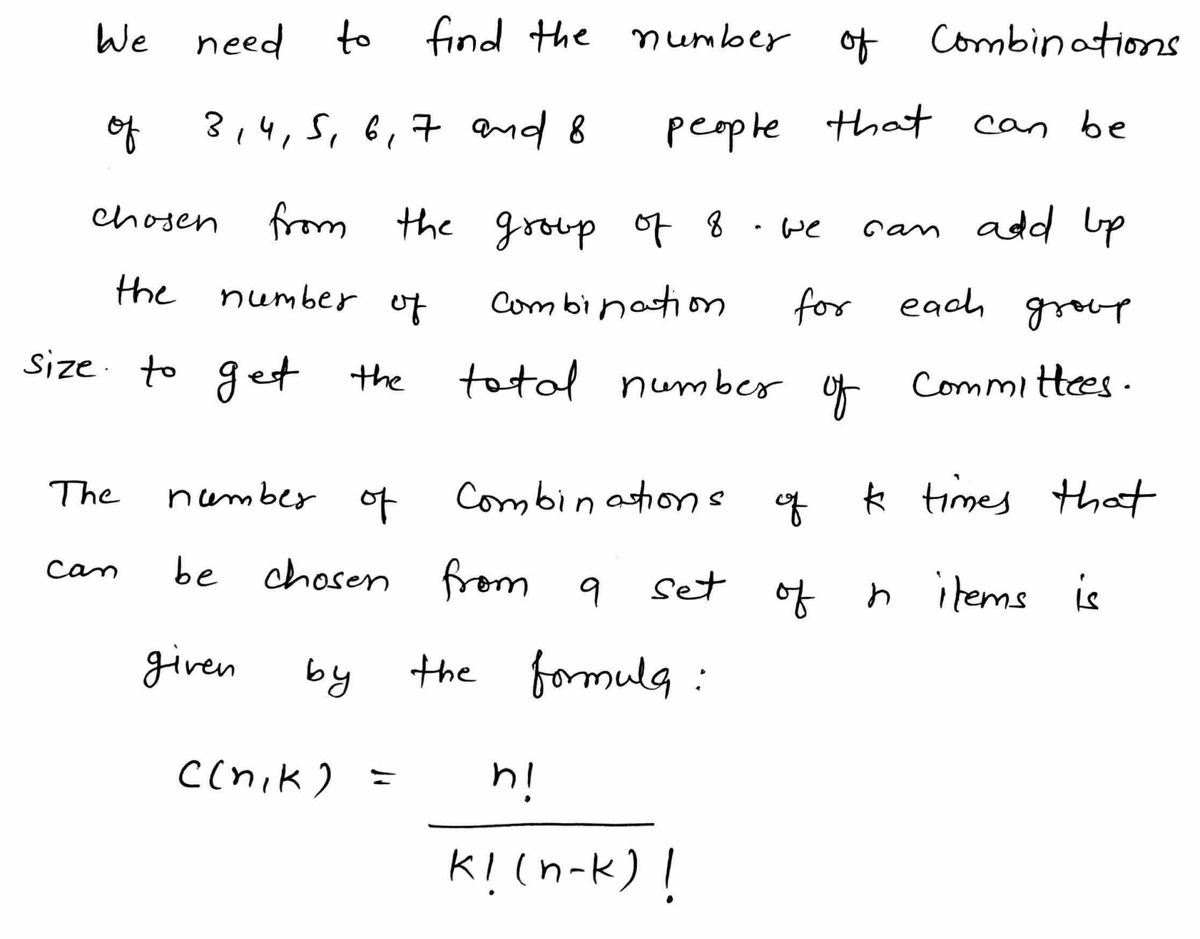 We need to find the number of Combinations
of 3,4,5,6,7 and 8 people that can be
chosen from the group of 8. we can add up
the number of combination for each group
size. to get the total number of Committees.
The number of Combinations of k times that
can be chosen from a set of n items is
given by the formula :
C(n,k) = n!
k!(n-k)!